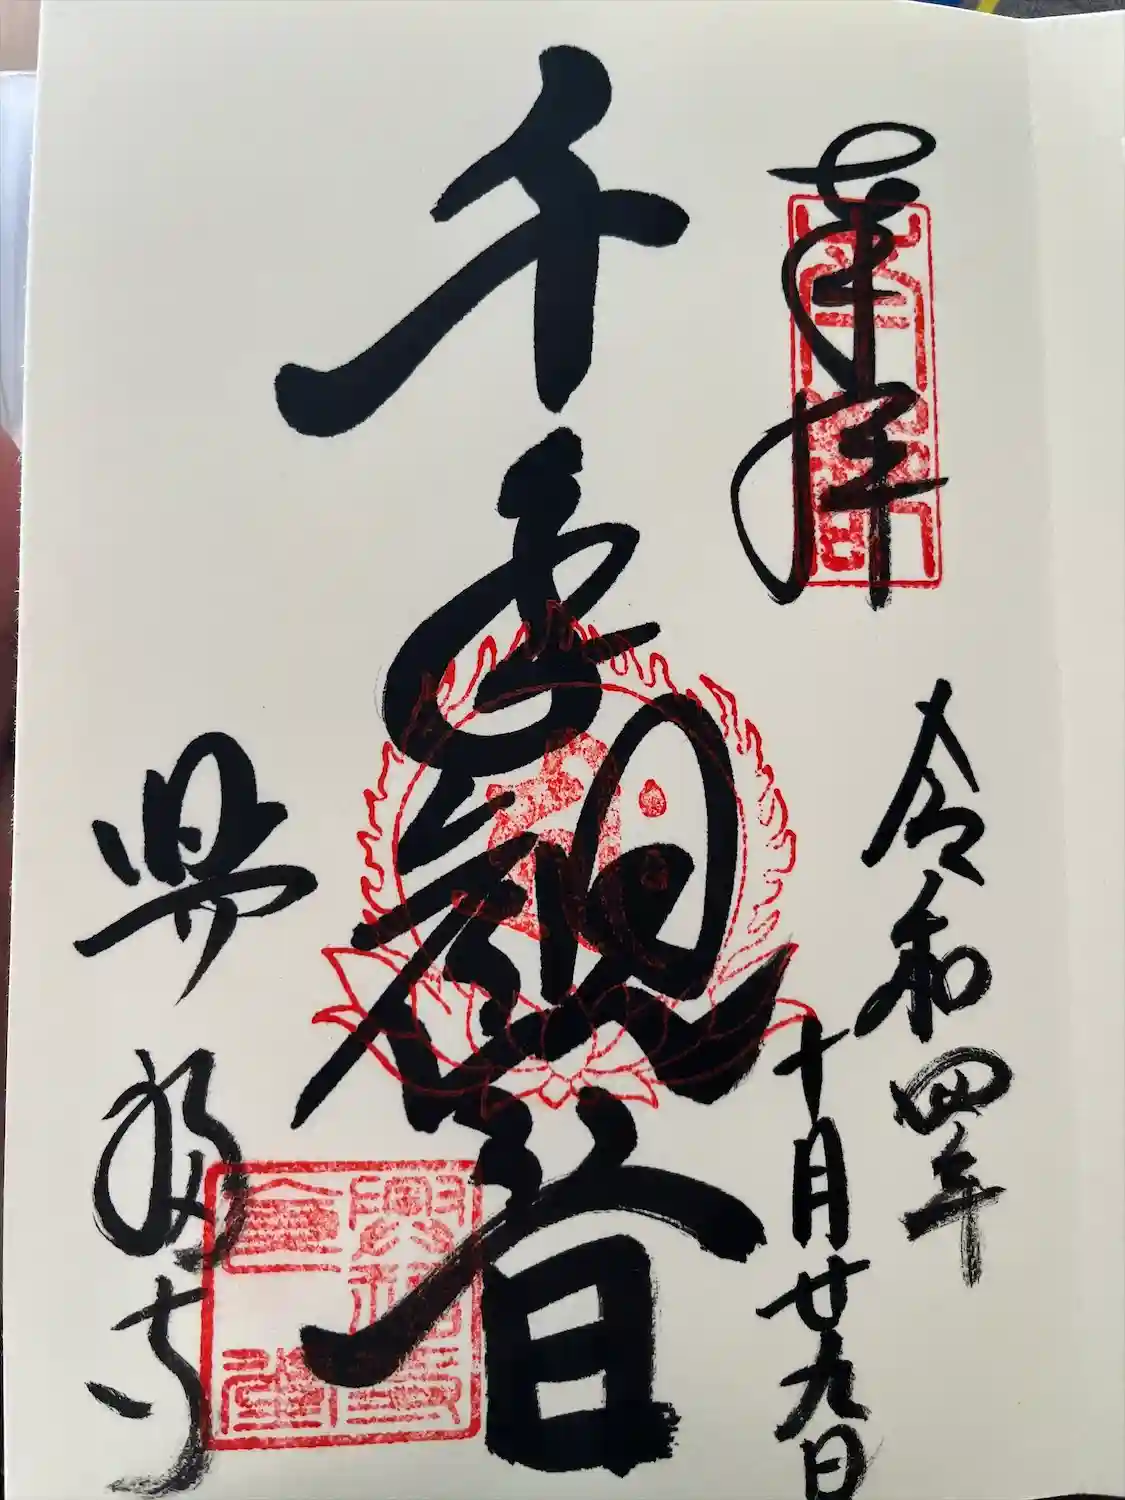 奉拝
令和四年
十月廿九日
千手観音
興福寺
興福寺